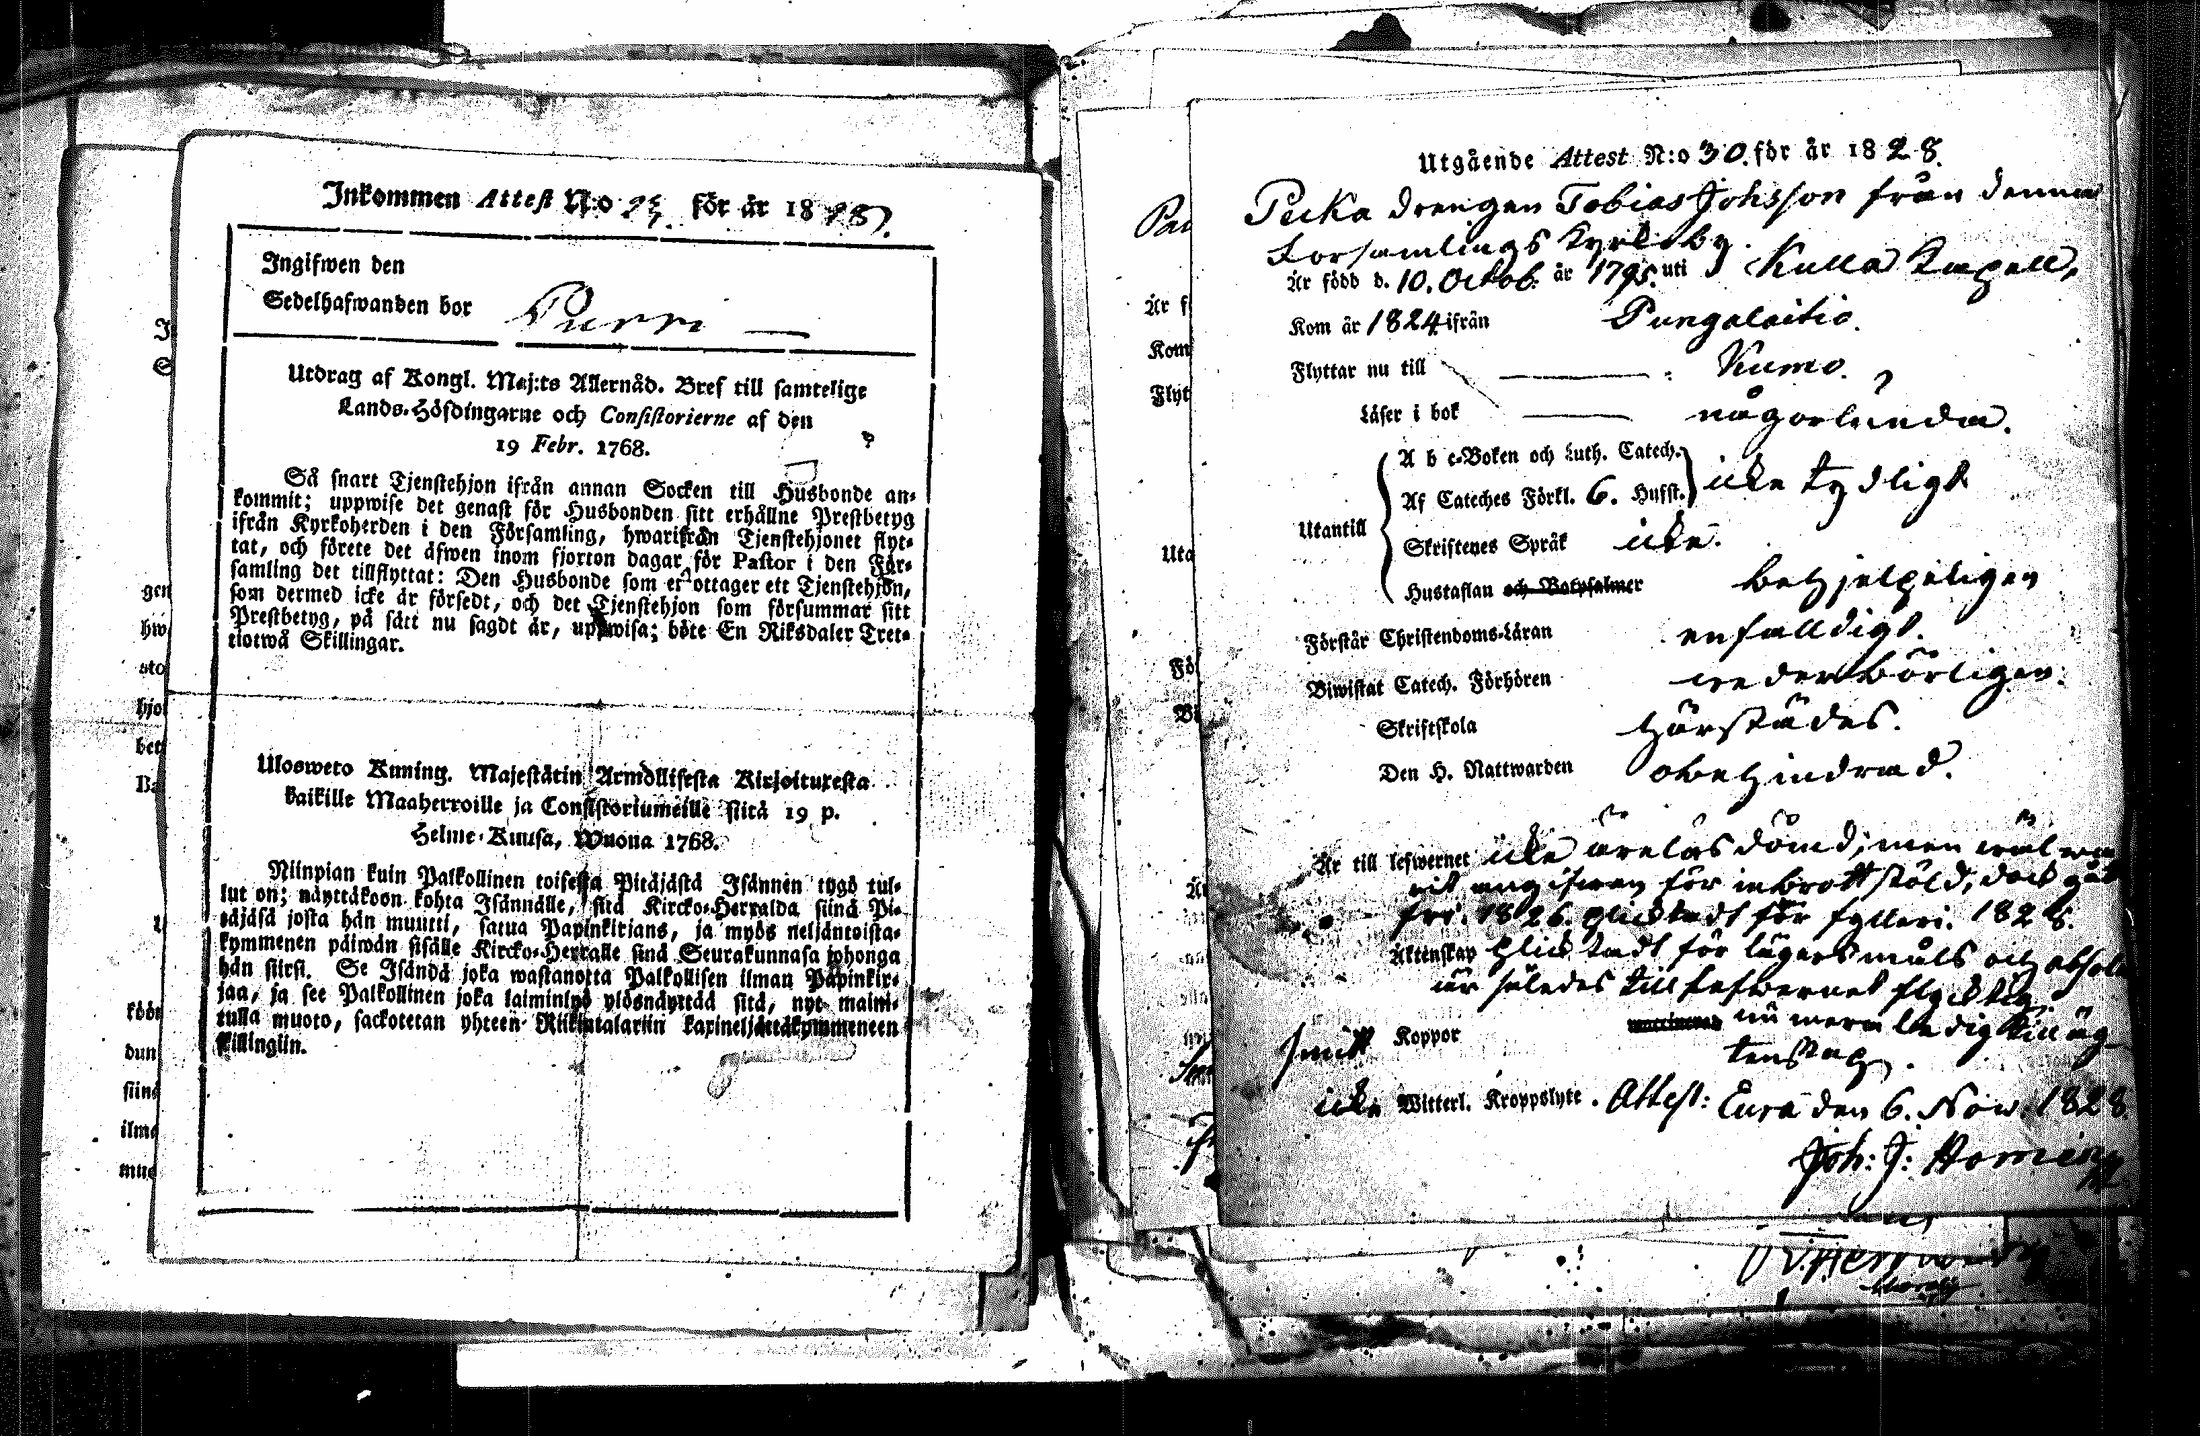 Inkommen Attest N:o 23. för år 1828.
Ingifwen den
Sedelhafwanden bor Purri
Utdrag af Kongl. Maj:ts Allernåd. Bref till samtelige
Lands-Höfdingarne och Consistorierne af den
19 Febr. 1768.
Så snart Tjenstehjon ifrån annan Socken till Husbonde an-
kommit; uppwise det genast för Husbonden sitt erhållne Prestbetyg
ifrån Kyrkoherden i den Församling, hwarifrån Tjenstehjonet flyt-
tat, och förete det äfwen inom fjorton dagar för Pastor i den För-
samling det tillflyttat: Den Husbonde som emottager ett Tjenstehjon,
som dermed icke är försedt, och det Tjenstehjon som försummar sitt
Prestbetyg, på sätt nu sagdt är, uppwisa; böte En Riksdaler Tret-
tiotwå Skillingar.
Ulosweto Kuning. Majestätin Armollisesta Kirjoituxesta
kaikille Maaherroille ja Consistoriumeille siitä 19 p.
Helme-Kuusa, Wuona 1768.
Niinpian kuin Palkollinen toisesta Pitäjästä Isännen tygö tul-
lut on; näyttäkoon kohta Isännälle, sitä Kircko-Herralda siinä Pi-
täjäsä josta hän muutti, saatua Papinkirjans, ja myös neljäntoista-
kymmenen päiwän sisälle Kircko-Herralle siinä Seurakunnasa johonga
hän siirsi. Se Isändä joka wastanotta Palkollisen ilman Papinkir-
jaa, ja see Palkollinen joka laiminlyö ylösnäyttää sitä, nyt maini-
tulla muoto, sackotetan yhteen Riikintalariin kaxineljättäkymmeneen
skillingiin.
Utgående Attest N:o 30. för år 1828.
Pecka drengen Tobias Johsson från denna
Forsamlings Kyrkoby.
Är född d. 10. Octob. år 1795. uti Kulla Kapell,
Kom år 1824 ifrån Pungalaitio.
Flyttar nu till Kumo.
Läser i bok någorlunda.
Utantill
A b c-Boken och Luth. Catech.
Af Cateches Förkl. 6. Hufst. icke tydligt
Skriftenes Språk icke.
Hustaflan och Botpsalmer behjelpeligen
Förstår Christendoms-Läran enfalldigt.
Biwistat Catech. Förhören wederbörligen.
Skriftskola härstädes.
Den H. Nattwarden obehindrad.
Är till lefwernet icke ärelös dömd; men wäl
angifwen för inbrott stöld; dock
fri. 1826. plicktadt för fylleri. 182
Äktenskap plicktadt för lägersmåls och
är således till lefwernet
nu mera ledig till äg
tenskap.
smitt Koppor
icke Witterl. Kroppslyte. Attest: Eura den 6. Now. 1828.
Joh: J: